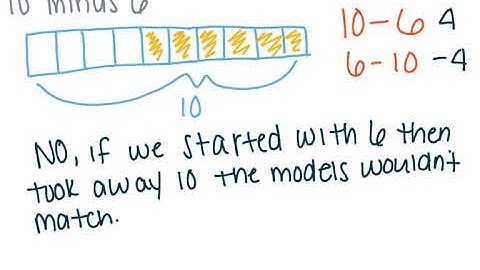 10 minus 6
10-6 4
6-10 -4
10
No, if we started with 6 then
took away 10 the models wouldn't
match.